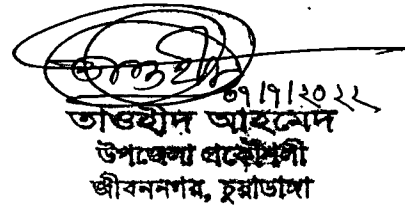 তাওহীদ
০৭/৭/২০২২
তাওহীদ আহমেদ
উপজেলা প্রকৌশলী
জীবননগর, চুয়াডাঙ্গা